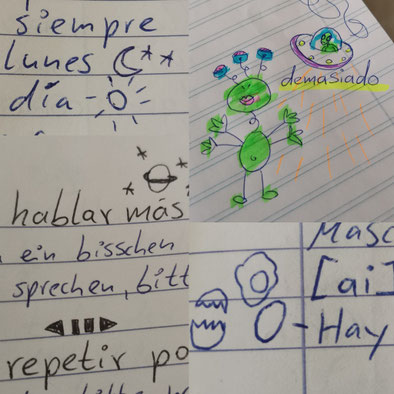 siempre
lunes
día -
demasiado
hablar más
ein bisschen
sprechen, bitt
repetir po
Masc
[ai]
- Hay